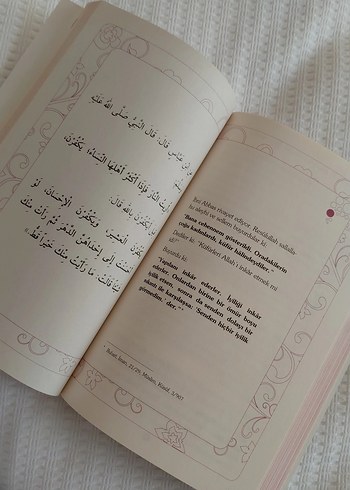 ابْنِ عَبَّاسٍ قَالَ: قَالَ النَّبِيُّ صَلَّى اللهُ عَلَيْهِ
النَّارَ فَإِذَا أَكْثَرُ أَهْلِهَا النِّسَاءُ، يَكْفُرْنَ،
أَيَكْفُرْنَ بِاللهِ قَالَ:
يَكْفُرْنَ الْعَشِيرَ، وَيَكْفُرْنَ الْإِحْسَانَ، لَوْ
أَحْسَنْتَ إِلَى إِحْدَاهُنَّ الدَّهْرَ ثُمَّ رَأَتْ مِنْكَ
قَالَتْ: مَا رَأَيْتُ مِنْكَ خَيْرًا قَطُّ.»
İbni Abbas rivayet ediyor. Resûlullah sallalla-
hu aleyhi ve sellem buyurdular ki:
"Bana cehennem gösterildi. Oradakilerin
çoğu kadındı, küfür halindeydiler."
Dediler ki: "Küfürleri Allah'ı inkâr etmek mi-
di?"
Buyurdu ki:
"Yapılanı inkâr ederler, İyiliği inkâr
ederler. Onlardan birine bir ömür boyu
iyilik etsen, sonra da senden dolayı bir
sıkıntı ile karşılaşsa: 'Senden hiçbir iyilik
görmedim,' der."
Buhari, İman, 21/29; Müslim, Küsûf, 3/907